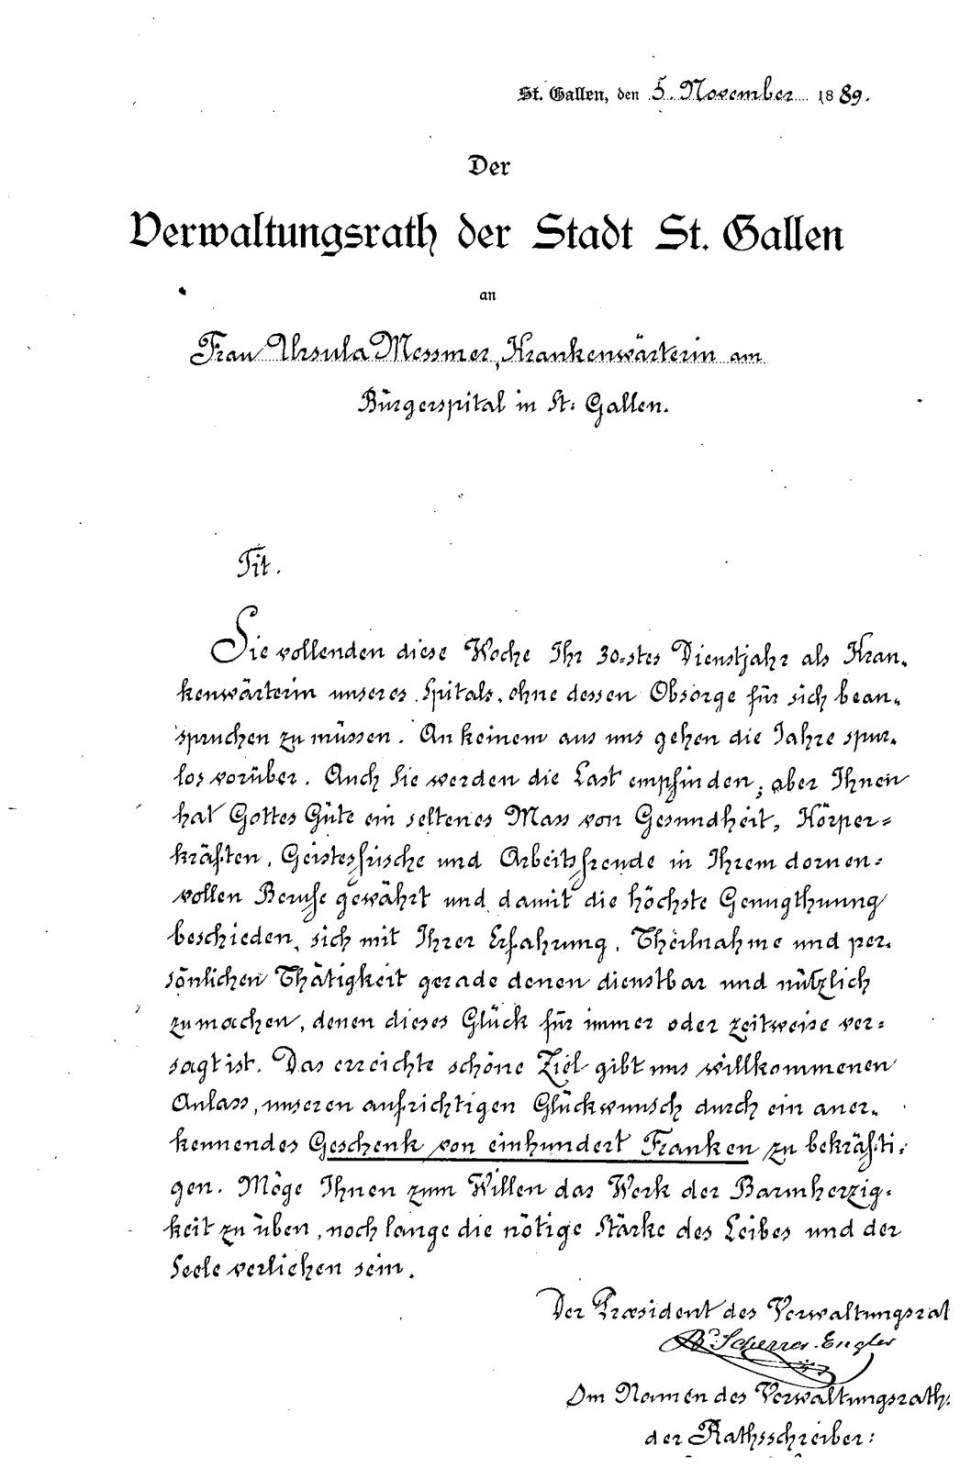 St. Gallen, den 5. November 1889.
Der
Verwaltungsrath der Stadt St. Gallen
an
Frau Ursula Messmer, Krankenwärterin am
Bürgerspital in St. Gallen.
Tit.
Sie vollenden diese Woche Ihr 30-stes Dienstjahr als Kran-
kenwärterin unseres Spitals, ohne dessen Obsorge für sich bean-
spruchen zu müssen. An keinem aus uns gehen die Jahre spur-
los vorüber. Auch Sie werden die Last empfinden; aber Ihnen
hat Gottes Güte ein seltenes Mass von Gesundheit, Körper-
kräften, Geistesfrische und Arbeitsfreude in Ihrem dornen-
vollen Berufe gewährt und damit die höchste Genugthuung
beschieden, sich mit Ihrer Erfahrung, Theilnahme und per-
sönlichen Thätigkeit gerade denen dienstbar und nützlich
zu machen, denen dieses Glück für immer oder zeitweise ver-
sagt ist. Das erreichte schöne Ziel gibt uns willkommenen
Anlass, unseren aufrichtigen Glückwunsch durch ein aner-
kennendes Geschenk von einhundert Franken zu bekräfti-
gen. Möge Ihnen zum Willen das Werk der Barmherzig-
keit zu üben, noch lange die nötige Stärke des Leibes und der
Seele verliehen sein.
Der Præsident des Verwaltungsrat
Scherrer-Engler
Im Namen des Verwaltungsrath:
der Rathsschreiber: